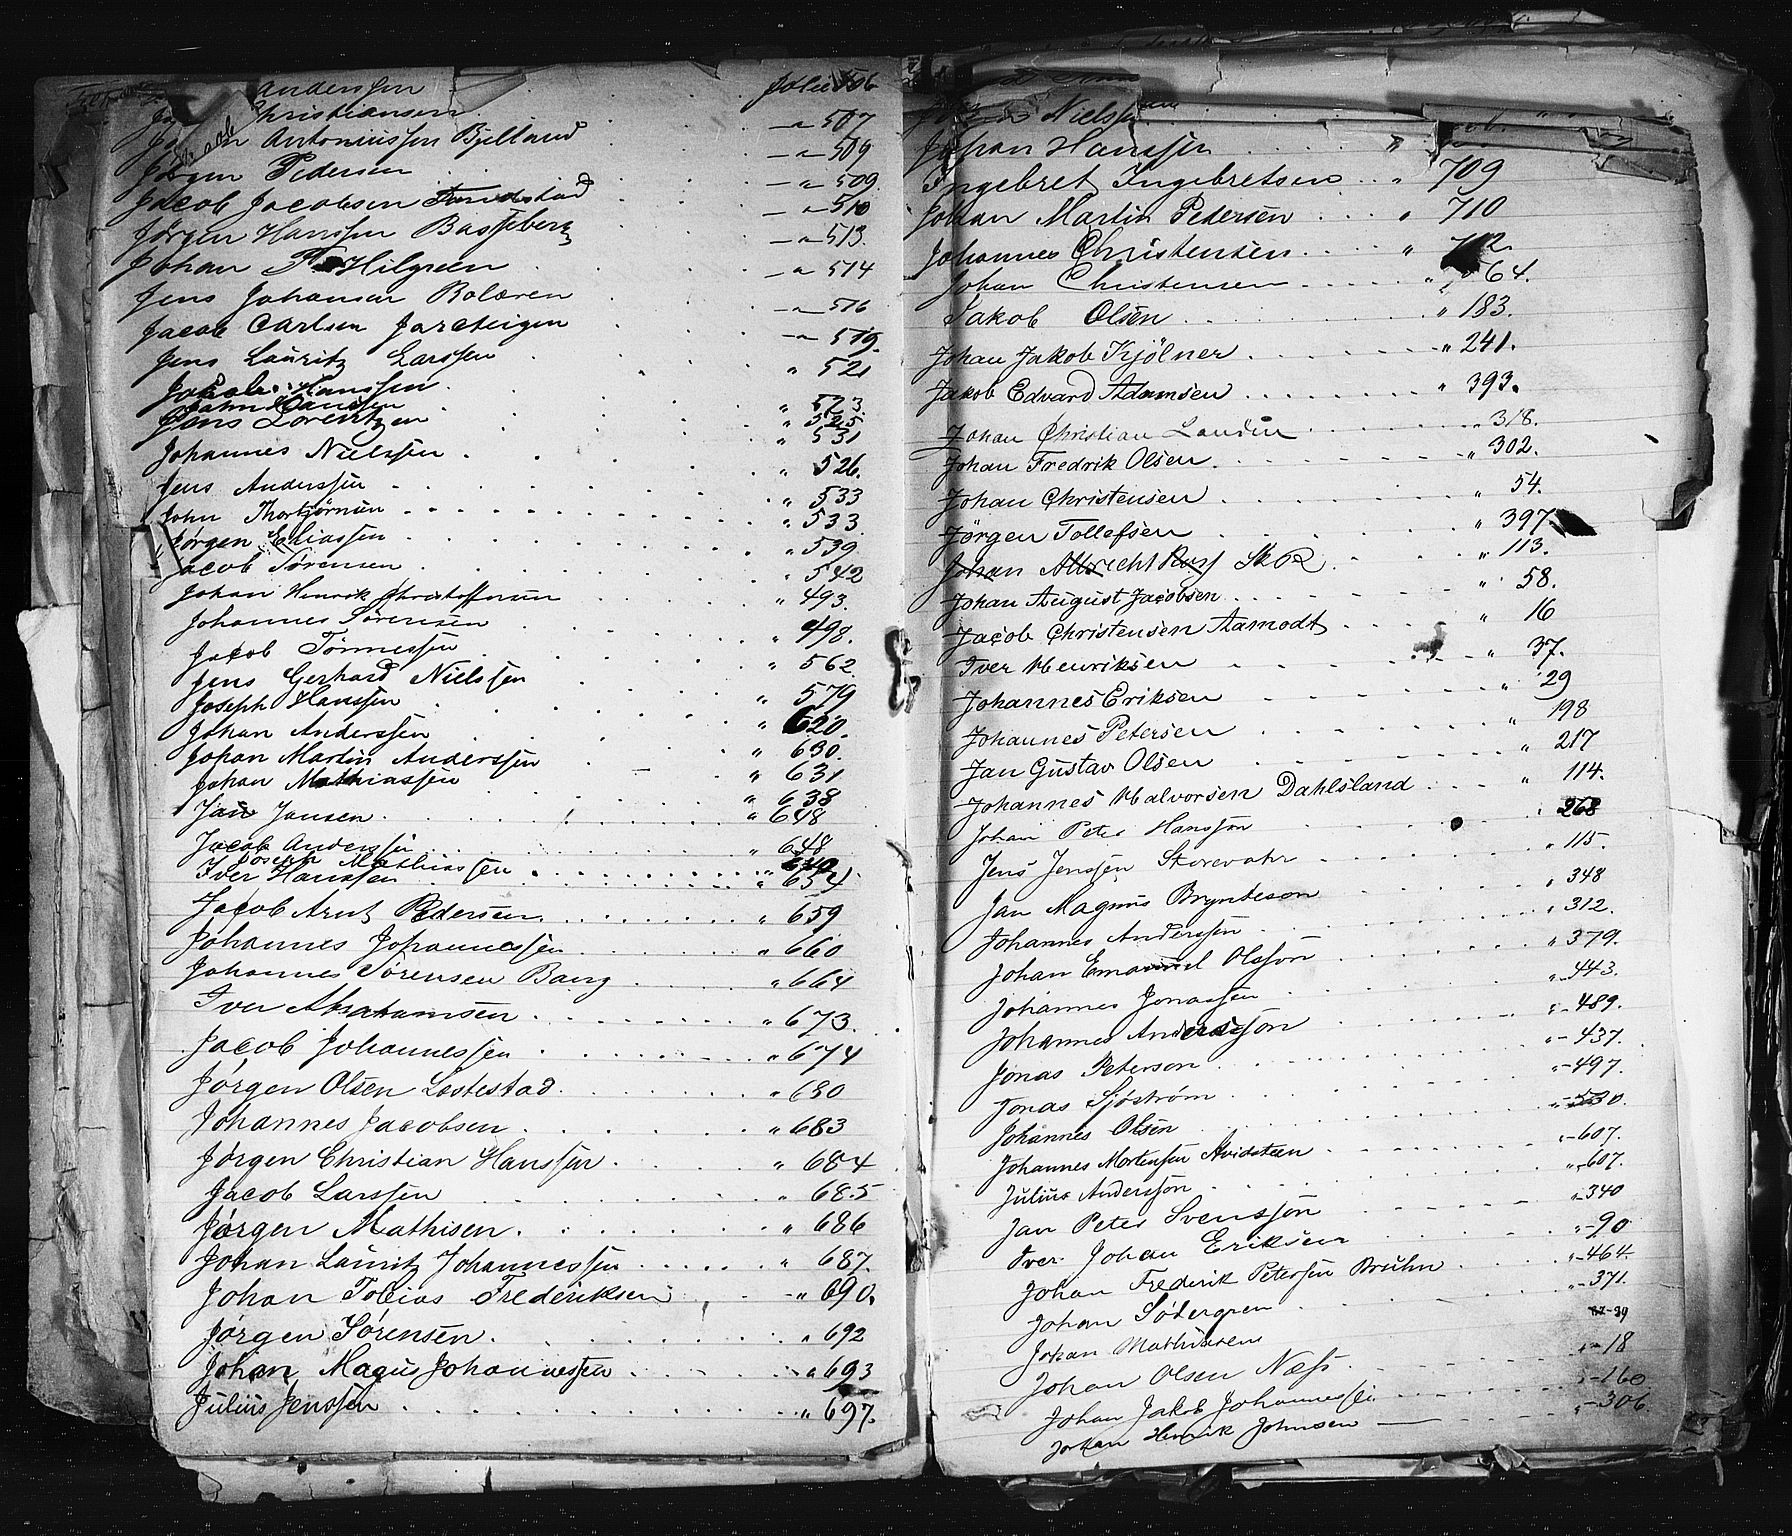 Anderssen Folio 506
Christiansen —„— 507
Antoniussen Bjelland —„— 509
Jørgen Pedersen —„— 509
Jacob Jacobsen —„— 510
Jørgen Hanssen Basseberg —„— 513.
Johan Hilgreen —„— 514
Jens Johansen Bolæren —„— 516
Jacob Carlsen Jarcteigen —„— 519.
Jens Lauritz Larssen „ 521
Jakob Hanssen „ 523.
„ 525
Jens Lorentzen „ 531
Johannes Nielssen „ 526.
Jens Anderssen „ 533
John Thorbjørnsen „ 533
Jørgen Eliassen „ 539
Jacob Sørensen „ 542
Johan Henrik Christoffersen „ 493.
Johannes Sørensen „ 498.
Jacob Tønnessen „ 562
Jens Gerhard Nielssen „ 579
Joseph Hanssen „ 620.
Johan Anderssen „ 630.
Johan Martin Anderssen „ 631
Johan Mathiassen „ 638
Jan Jansen „ 648
Jacob Anderssen „ 648
Mathiassen „
Iver Hanssen „ 654
Jacob Arnt Pedersen „ 659
Johannes Johannessen „ 660
Johannes Sørensen Bang „ 664
Iver Abrahamsen „ 673.
Jacob Johannessen „ 674
Jørgen Olsen Løstestad „ 680
Johannes Jacobsen „ 683
Jørgen Christian Hanssen „ 684
Jacob Larssen „ 685
Jørgen Mathisen „ 686
Johan Lauritz Johannessen „ 687.
Johan Tobias Frederiksen „ 690.
Jørgen Sørensen „ 692
Johan Magus Johannessen „ 693
Julius Jenssen „ 697.
Nielssen
Johan Hanssen „
Ingebret Ingebretsen „ 709
Johan Martin Pedersen „ 710
Johannes Christensen „ 712.
Johan Christensen „ 64.
Jakob Olsen „ 183.
Johan Jakob Kjölner „ 241.
Jakob Edvard Adamsen „ 393.
Johan Christian Landin „ 318.
Johan Fredrik Olsen „ 302.
Johan Christensen „ 54.
Jørgen Tollefsen „ 397
Johan Albrecht „ 113.
Johan August Jacobsen „ 58.
Jacob Christensen Aamodt „ 16
Iver Henriksen „ 37.
Johannes Eriksen „ 29
Johannes Petersen „ 198
Jan Gustav Olsen „ 217
Johannes Halvorsen Dahlsland „ 114.
Johan Peter Hansson 268
Jens Jenssen Storevahr „ 115.
Jan Magnus Brynteson „ 348
Johannes Anderssen „ 312.
Johan Emanuel Olsson „ 379.
Johannes Jonassen „ 443.
Johannes Andersson „- 489.
Jonas Peterson „- 437.
Jonas Sjøstrøm „- 497.
Johannes Olsen „- 530.
Johannes Mortensen Hvidsteen „- 607.
Julius Andersson „- 607.
Jan Peter Svensson „- 340
Iver Johan Eriksen „- 90
Johan Frederik Petersen Bruhn „- 464
Johan Södergren „- 371.
Johan Mathisen „- 39
Johan Olsen Næss „- 18
Johan Jakob Johannessen „- 160
Johan Henrik Johnsen „- 306.